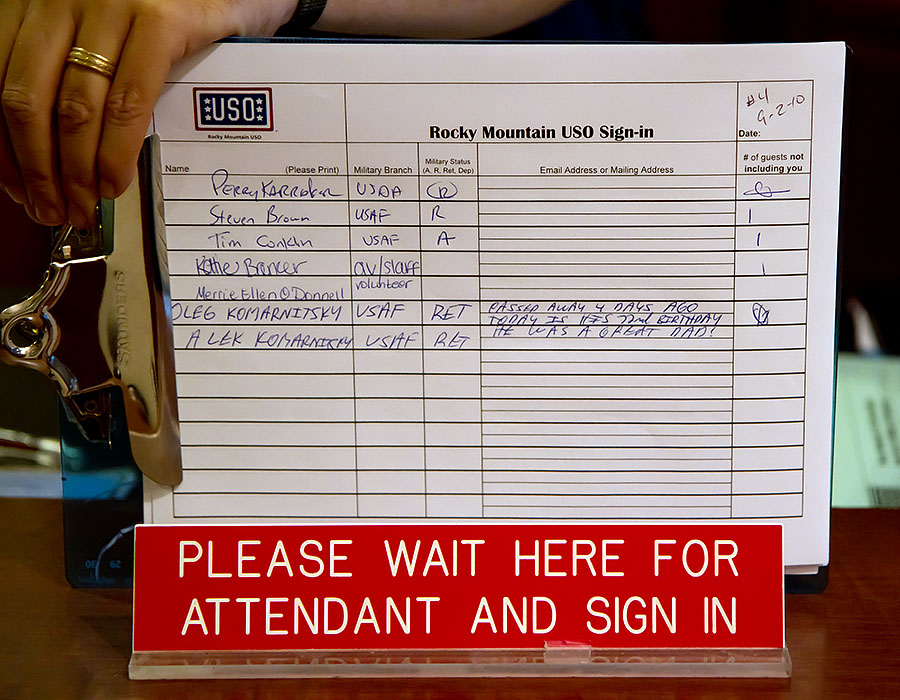 USO
Rocky Mountain USO
Rocky Mountain USO Sign-in
#4
9-2-10
Date:
Name (Please Print) Military Branch Military Status (A, R, Ret, Dep) Email Address or Mailing Address # of guests not including you
Perry Karraker USAA R
Steven Brown USAF R 1
Tim Conklin USAF A 1
Kathe Brancer av/staff 1
Merrie Ellen O'Donnell volunteer
OLEG KOMARNITSKY USAF RET PASSED AWAY 4 DAYS AGO
TODAY IS HIS 72nd BIRTHDAY
ALEK KOMARNITSKY USAF RET HE WAS A GREAT DAD!
SAUNDERS
PLEASE WAIT HERE FOR
ATTENDANT AND SIGN IN